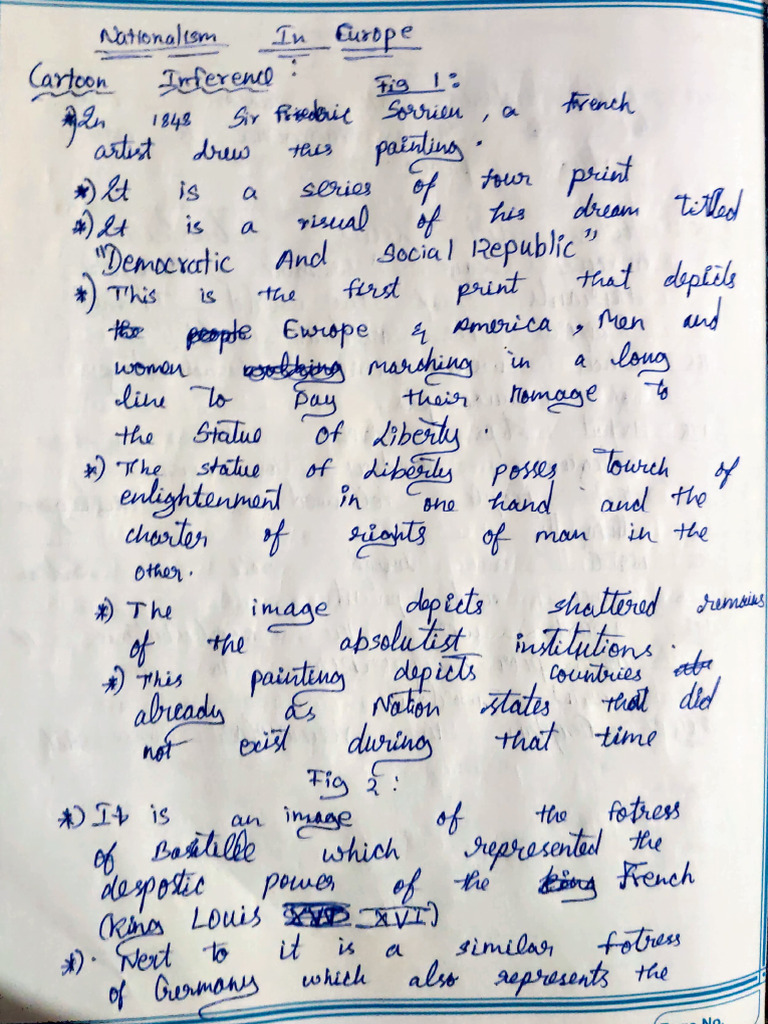 Nationalism In Europe
Cartoon Inference: Fig 1:
*) In 1848 Sir Fredric Sorrieu, a French
artist drew this painting.
*) It is a series of four print
*) It is a visual of his dream titled
"Democratic And Social Republic"
*) This is the first print that depicts
the people Europe & America, Men and
women walking marching in a long
line to pay their homage to
the Statue of Liberty.
*) The statue of Liberty posses tourch of
enlightenment in one hand and the
charter of rights of man in the
other.
*) The image depicts shattered remains
of the absolutist institutions.
*) This painting depicts countries
already as Nation states that did
not exist during that time
Fig 2:
*) It is an image of the fotress
of Bastelle which represented the
despostic power of the king French
(King Louis XVI XVI)
*). Next to it is a similar fotress
of Germany which also represents the
No.